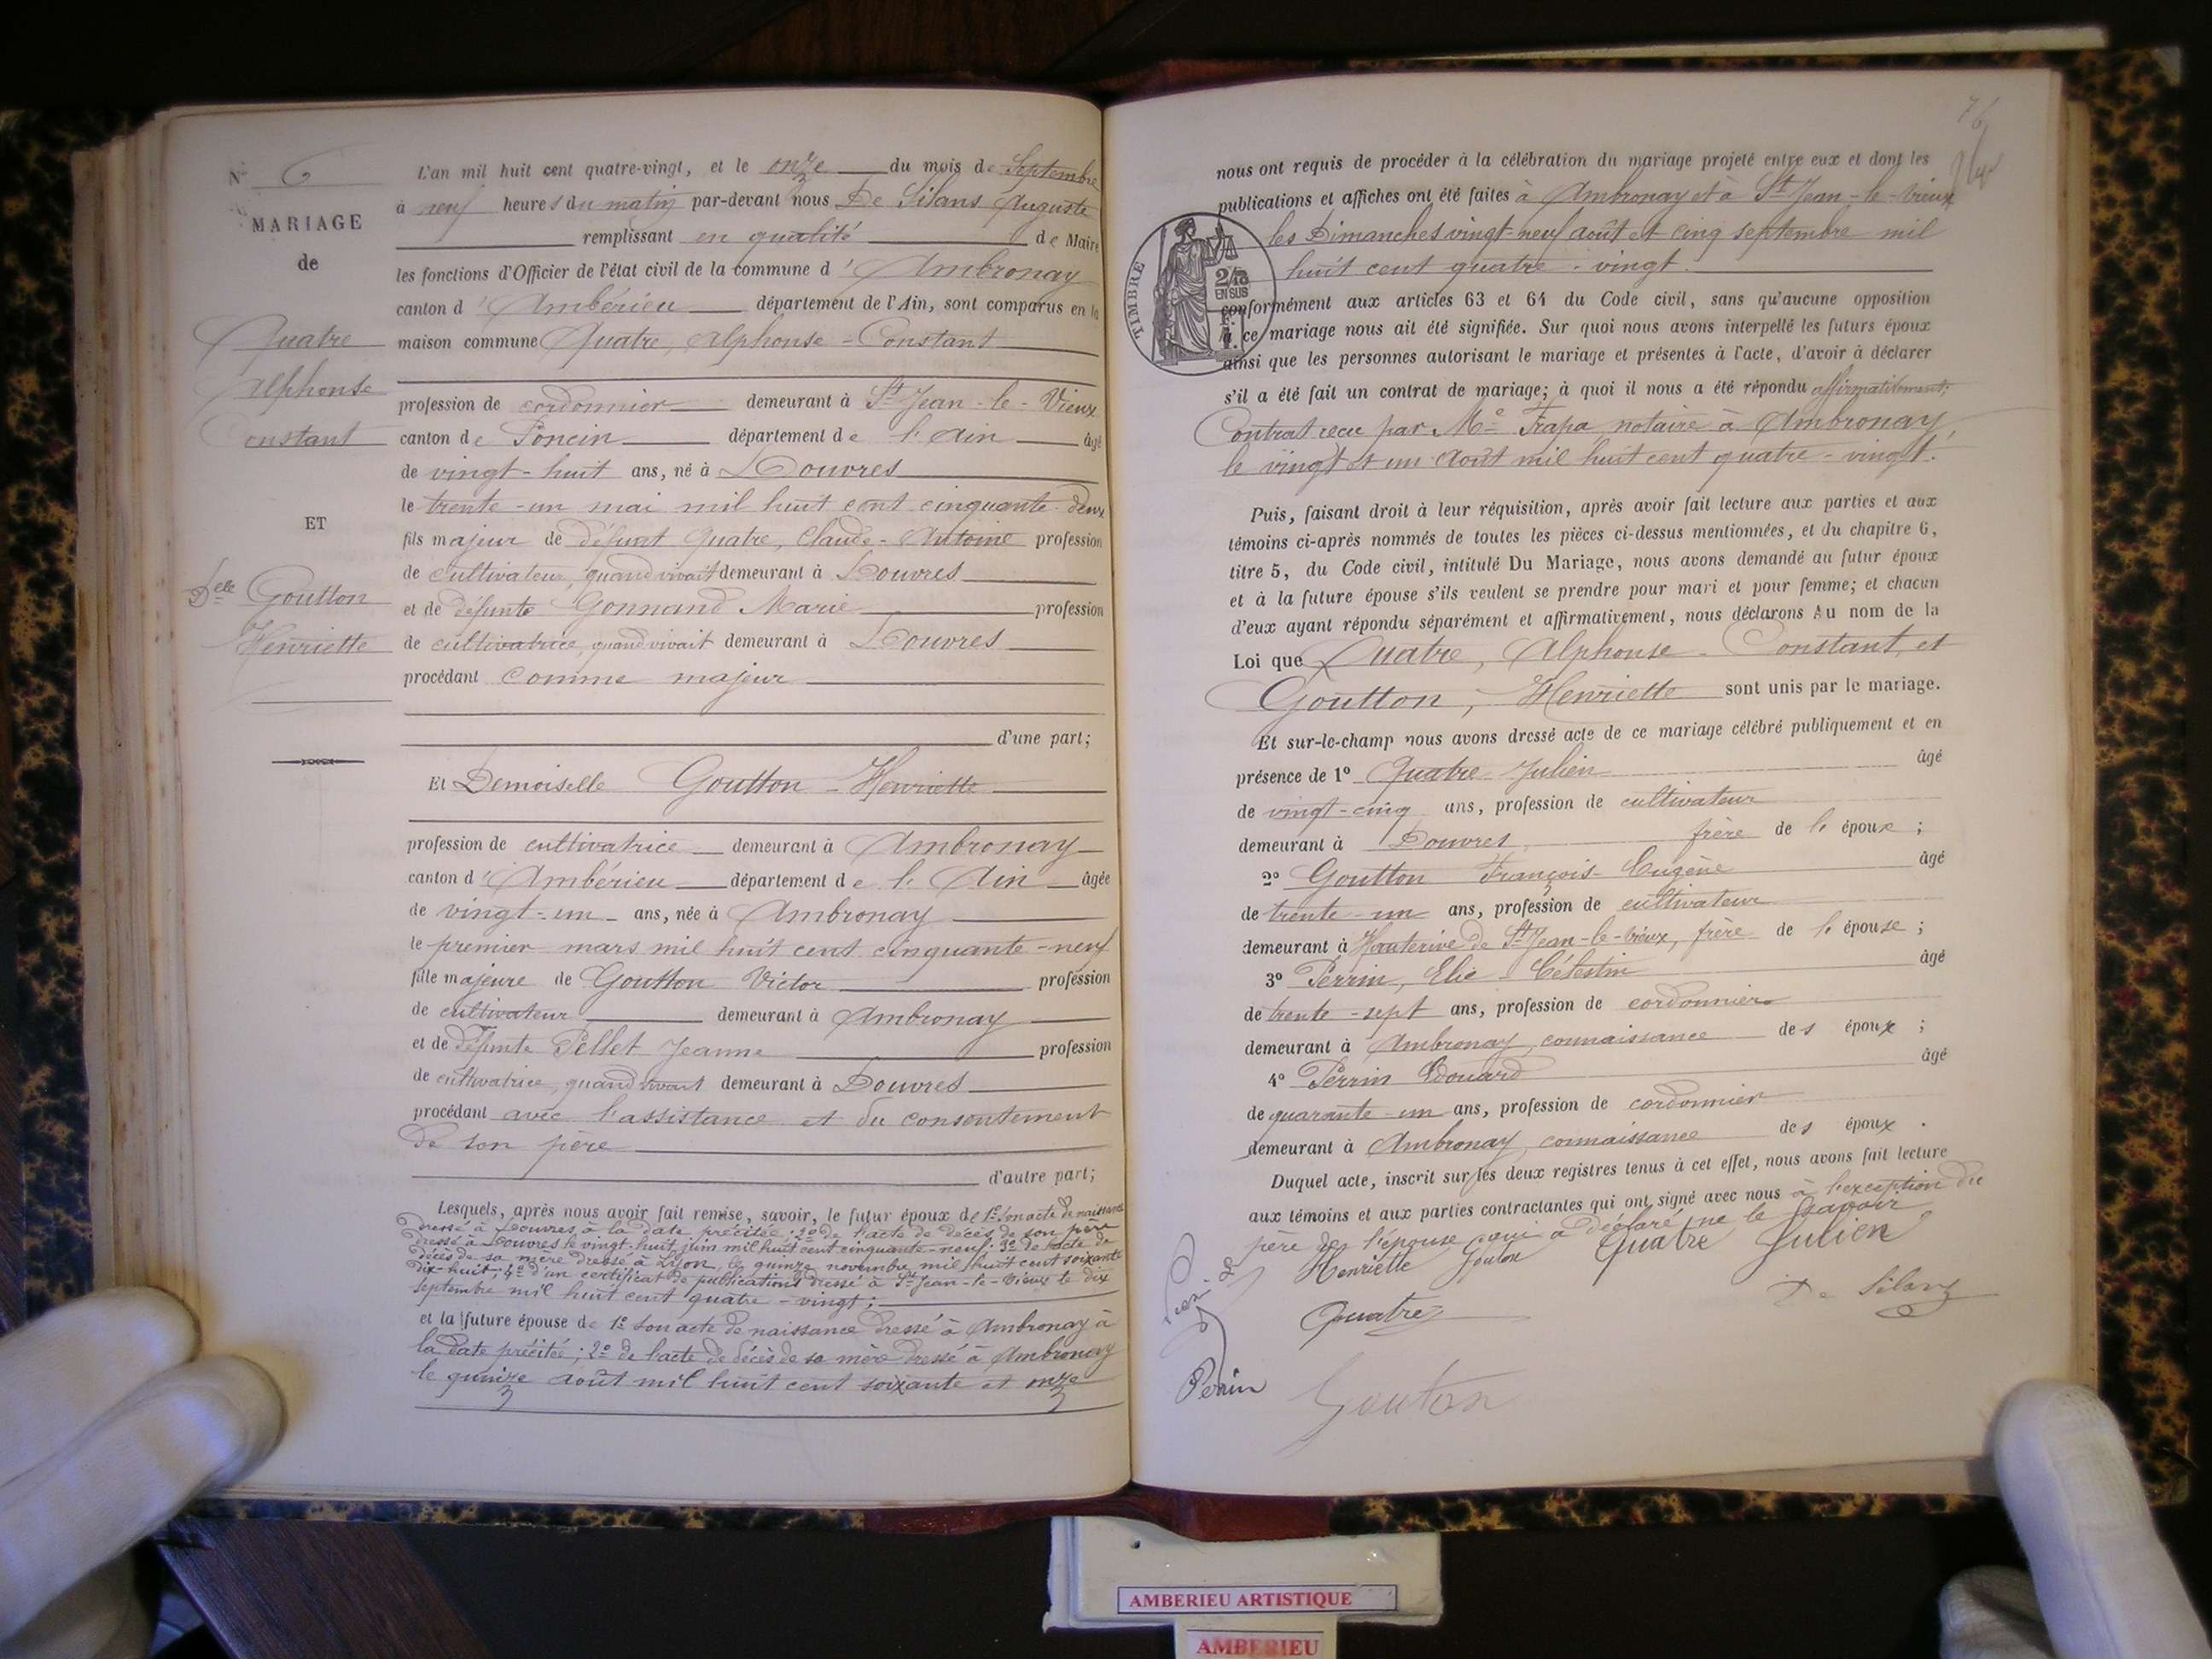 N° 6
MARIAGE
de
Quatre
Alphonse
Constant
ET
Delle Goutton
Henriette
L'an mil huit cent quatre-vingt, et le onze du mois de Septembre
à neuf heures du matin par-devant nous De Silans Auguste
remplissant en qualité de Maire
les fonctions d'Officier de l'état civil de la commune d'Ambronay
canton d'Ambérieu département de l'Ain, sont comparus en la
maison commune Quatre, Alphonse = Constant
profession de cordonnier demeurant à St Jean-le-Vieux
canton de Poncin département de l'Ain âgé
de vingt-huit ans, né à Douvres
le trente-un mai mil huit cent cinquante-deux
fils majeur de défunt Quatre, Claude-Antoine profession
de cultivateur, quand vivait demeurant à Douvres
et de défunte Gonnand Marie profession
de cultivatrice, quand vivait demeurant à Douvres
procédant comme majeur
d'une part;
Et Demoiselle Goutton - Henriette
profession de cultivatrice demeurant à Ambronay
canton d'Ambérieu département de l'Ain âgée
de vingt-un ans, née à Ambronay
le premier mars mil huit cent cinquante-neuf
fille majeure de Goutton Victor profession
de cultivateur demeurant à Ambronay
et de défunte Pellet Jeanne profession
de cultivatrice, quand vivait demeurant à Douvres
procédant avec l'assistance et du consentement
de son père
d'autre part;
Lesquels, après nous avoir fait remise, savoir, le futur époux de 1° son acte de naissance
dressé à Douvres à la date précitée; 2° de l'acte de décès de son père
dressé à Douvres le vingt-huit juin mil huit cent cinquante-neuf; 3° de l'acte de
décès de sa mère dressé à Lyon, le quinze novembre mil huit cent soixante
dix-huit; 4° d'un certificat de publications dressé à St Jean-le-Vieux le dix
septembre mil huit cent quatre-vingt;
et la future épouse de 1° son acte de naissance dressé à Ambronay à
la date précitée; 2° de l'acte de décès de sa mère dressé à Ambronay
le quinze août mil huit cent soixante et onze
76
nous ont requis de procéder à la célébration du mariage projeté entre eux et dont les
publications et affiches ont été faites à Ambronay et à St Jean-le-vieux
les Dimanches vingt-neuf août et cinq septembre mil
huit cent quatre-vingt.
TIMBRE
2/10
EN SUS
conformément aux articles 63 et 64 du Code civil, sans qu'aucune opposition
à ce mariage nous ait été signifiée. Sur quoi nous avons interpellé les futurs époux
ainsi que les personnes autorisant le mariage et présentes à l'acte, d'avoir à déclarer
s'il a été fait un contrat de mariage; à quoi il nous a été répondu affirmativement;
Contrat reçu par Me Frapa notaire à Ambronay,
le vingt et un août mil huit cent quatre-vingt.
Puis, faisant droit à leur réquisition, après avoir fait lecture aux parties et aux
témoins ci-après nommés de toutes les pièces ci-dessus mentionnées, et du chapitre 6,
titre 5, du Code civil, intitulé Du Mariage, nous avons demandé au futur époux
et à la future épouse s'ils veulent se prendre pour mari et pour femme; et chacun
d'eux ayant répondu séparément et affirmativement, nous déclarons Au nom de la
Loi que Quatre, Alphonse - Constant, et
Goutton, Henriette sont unis par le mariage.
Et sur-le-champ nous avons dressé acte de ce mariage célébré publiquement et en
présence de 1° Quatre Julien âgé
de vingt-cinq ans, profession de cultivateur
demeurant à Douvres, frère de l'époux ;
2° Goutton François-Eugène âgé
de trente-un ans, profession de cultivateur
demeurant à Hauterive de St Jean-le-vieux, frère de l'épouse ;
3° Perrin, Elie Célestin âgé
de trente-sept ans, profession de cordonnier
demeurant à Ambronay, connaissance des époux ;
4° Perrin Edouard âgé
de quarante-un ans, profession de cordonnier
demeurant à Ambronay, connaissance des époux .
Duquel acte, inscrit sur les deux registres tenus à cet effet, nous avons fait lecture
aux témoins et aux parties contractantes qui ont signé avec nous à l'exception du
père de l'épouse qui a déclaré ne le savoir
Henriette Gouton Quatre Julien
De Silans
Quatre
Perrin
Gouton
AMBERIEU ARTISTIQUE
AMBERIEU